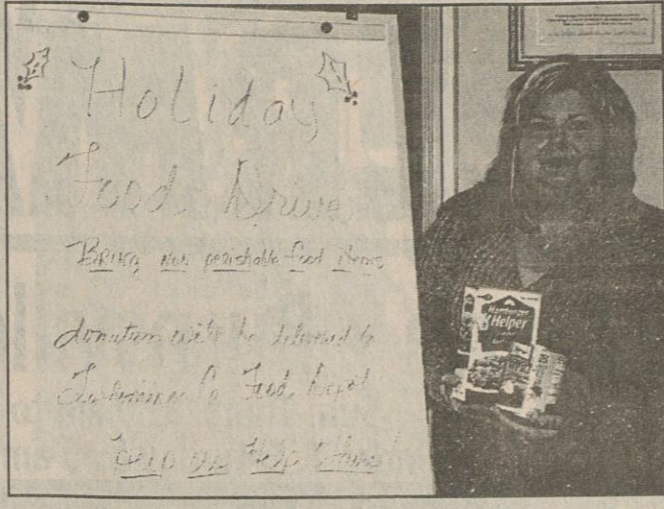 Holiday
Food Drive
Bring non perishable food items
donations will be delivered to
Co Food Depot
Help us Help Others!
Hamburger
Helper